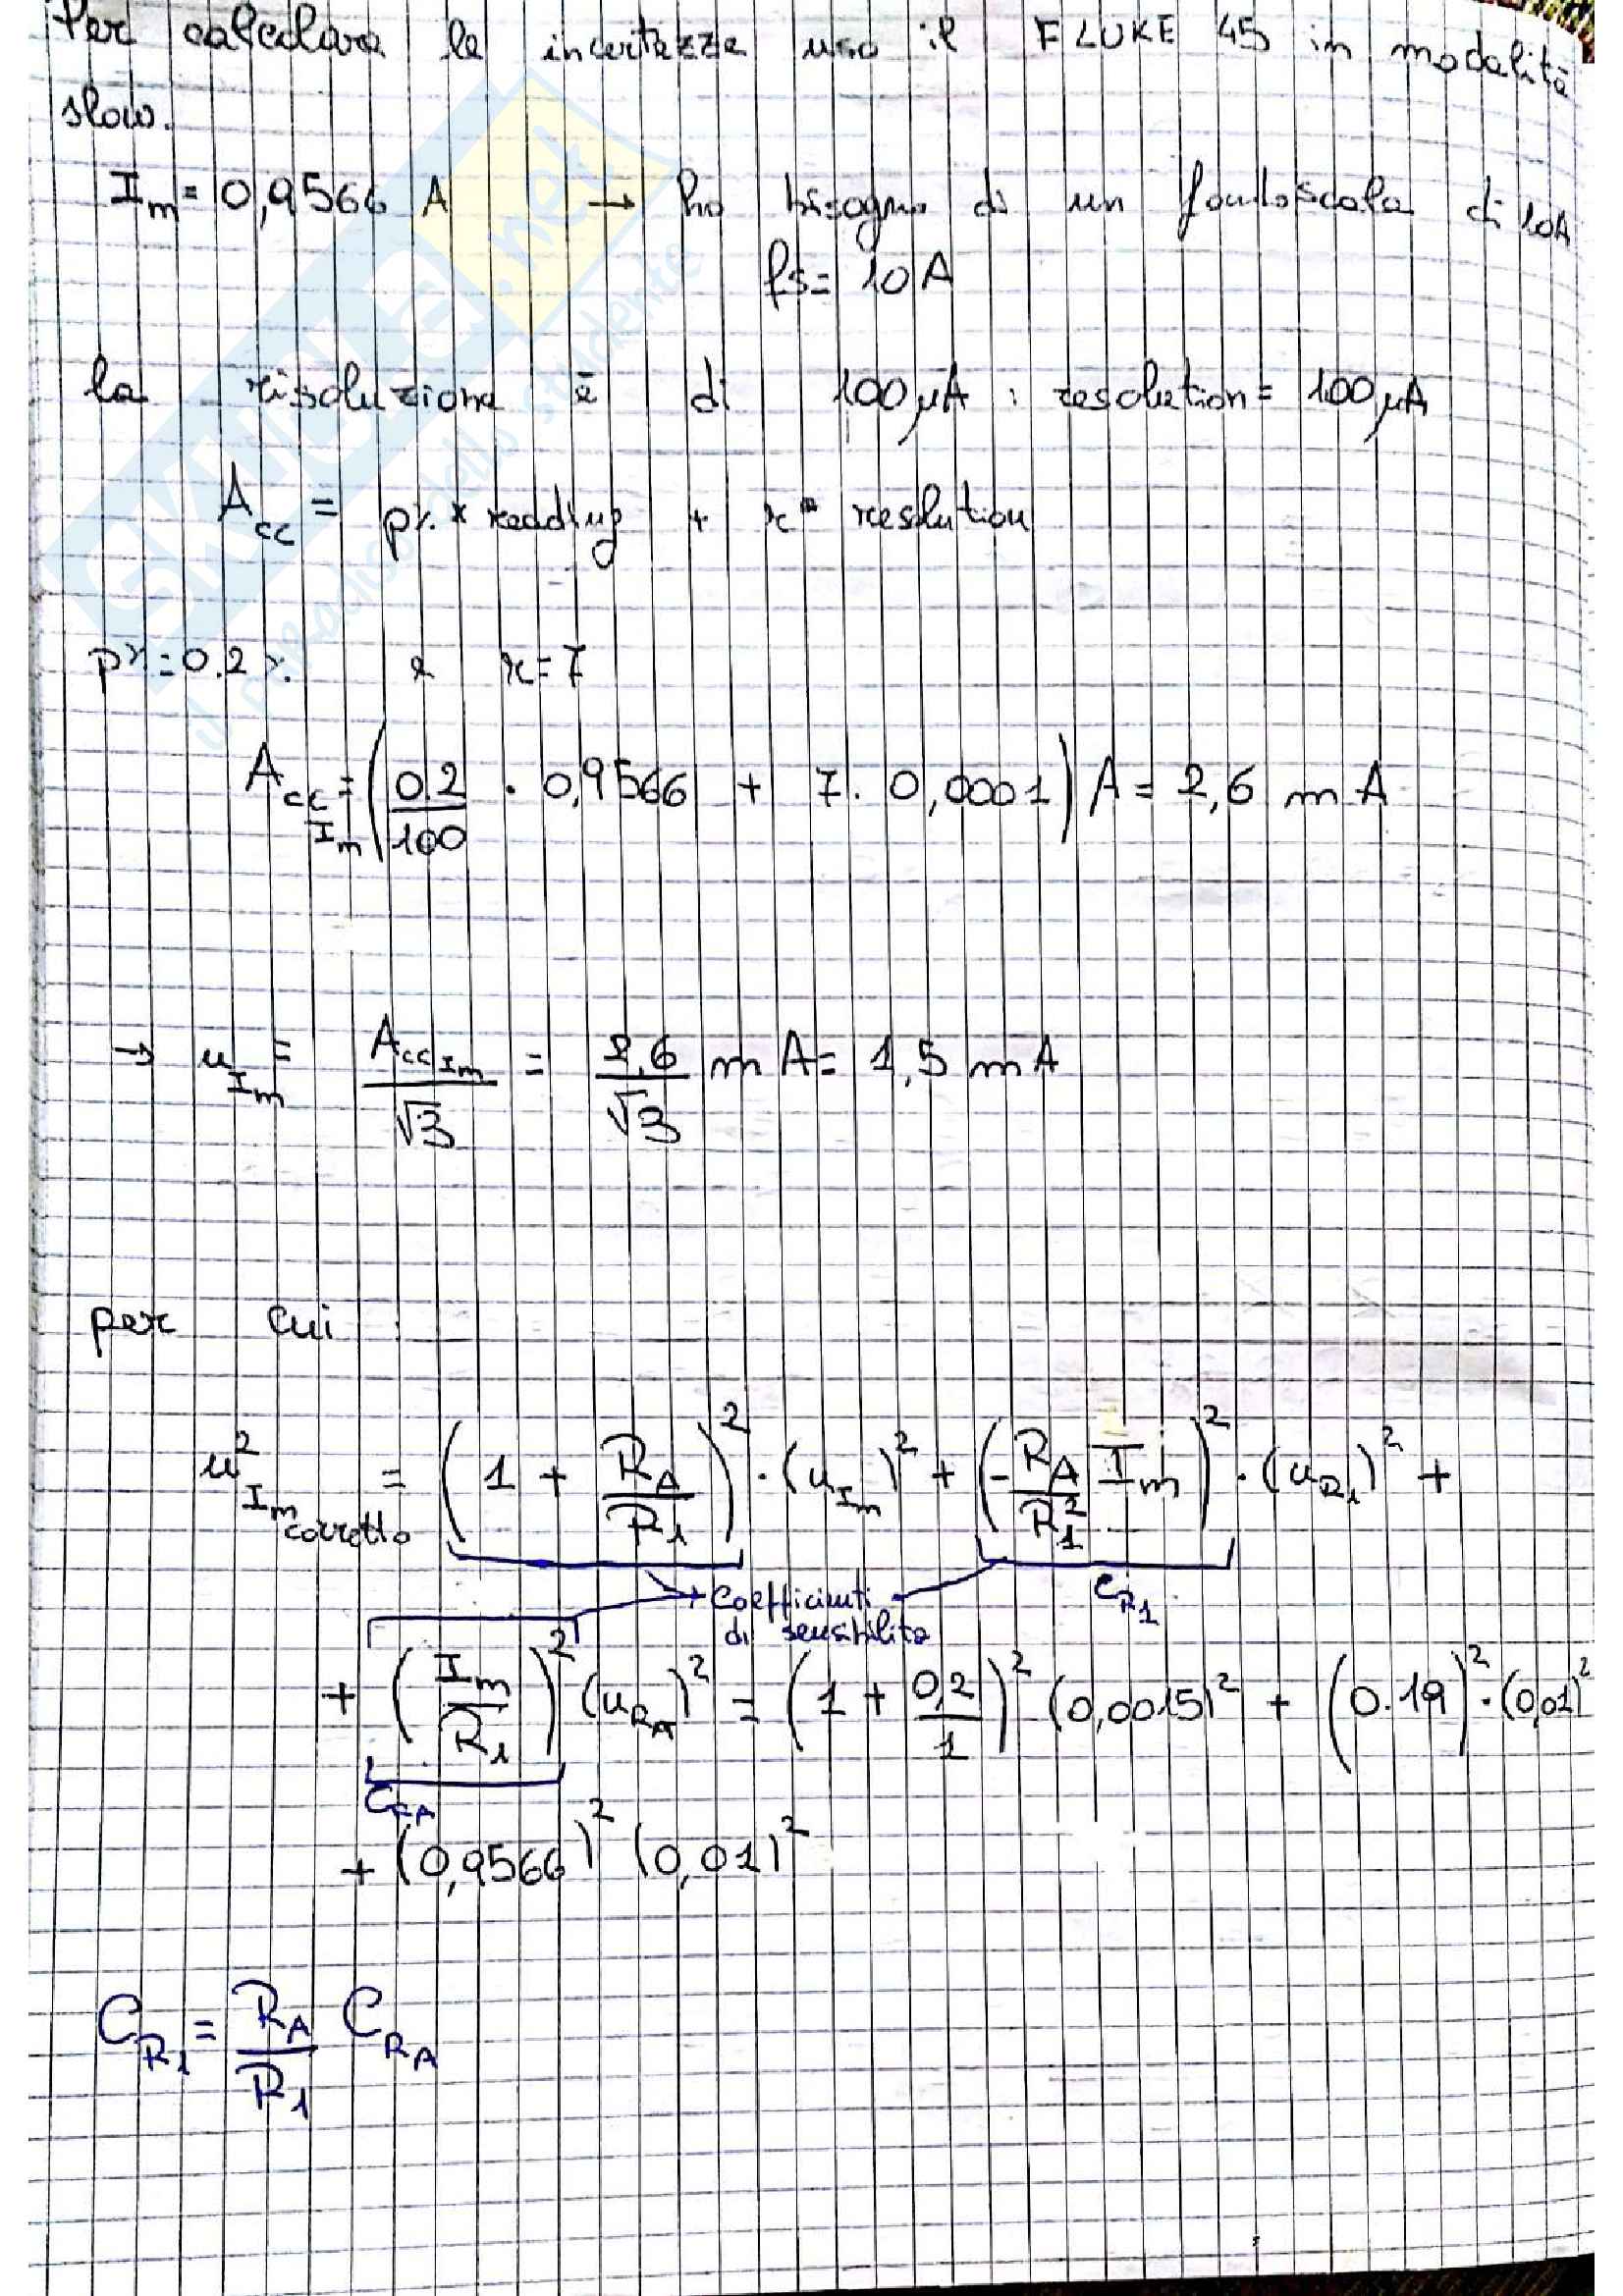 Per calcolare le incertezze uso il FLUKE 45 in modalità
slow.
Im = 0,9566 A → ho bisogno di un fondoscala di 10A
fs = 10 A
la risoluzione è di 100 μA : resolution = 100 μA
Acc = p% * reading + x * resolution
p% = 0.2 % e x = 7
Acc Im = (0.2/100 · 0,9566 + 7 · 0,0001) A = 2,6 mA
→ u Im = Acc Im/√3 = 2,6/√3 mA = 1,5 mA
per cui
u² Im corretto = (1 + RA/R1)² · (u Im)² + (- RA/R1² Im)² · (u R1)² +
coefficienti
di sensibilità
C R1
+ (Im/R1)² (u RA)² = (1 + 0,2/1)² (0,0015)² + (0.19)² · (0,01)²
C RA
+ (0,9566)² (0,01)²
C R1 = RA/R1 C RA
SKUOLA.net
il paradiso dello studente